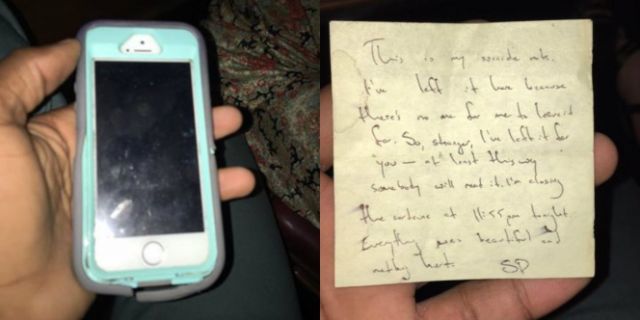 This is my suicide note.
I've left it here because
there's no one for me to leave it
for. So, stranger, I've left it for
you — at least this way
somebody will read it. I'm closing
the curtains at 11:55pm tonight.
Everything was beautiful and
nothing hurt. SD